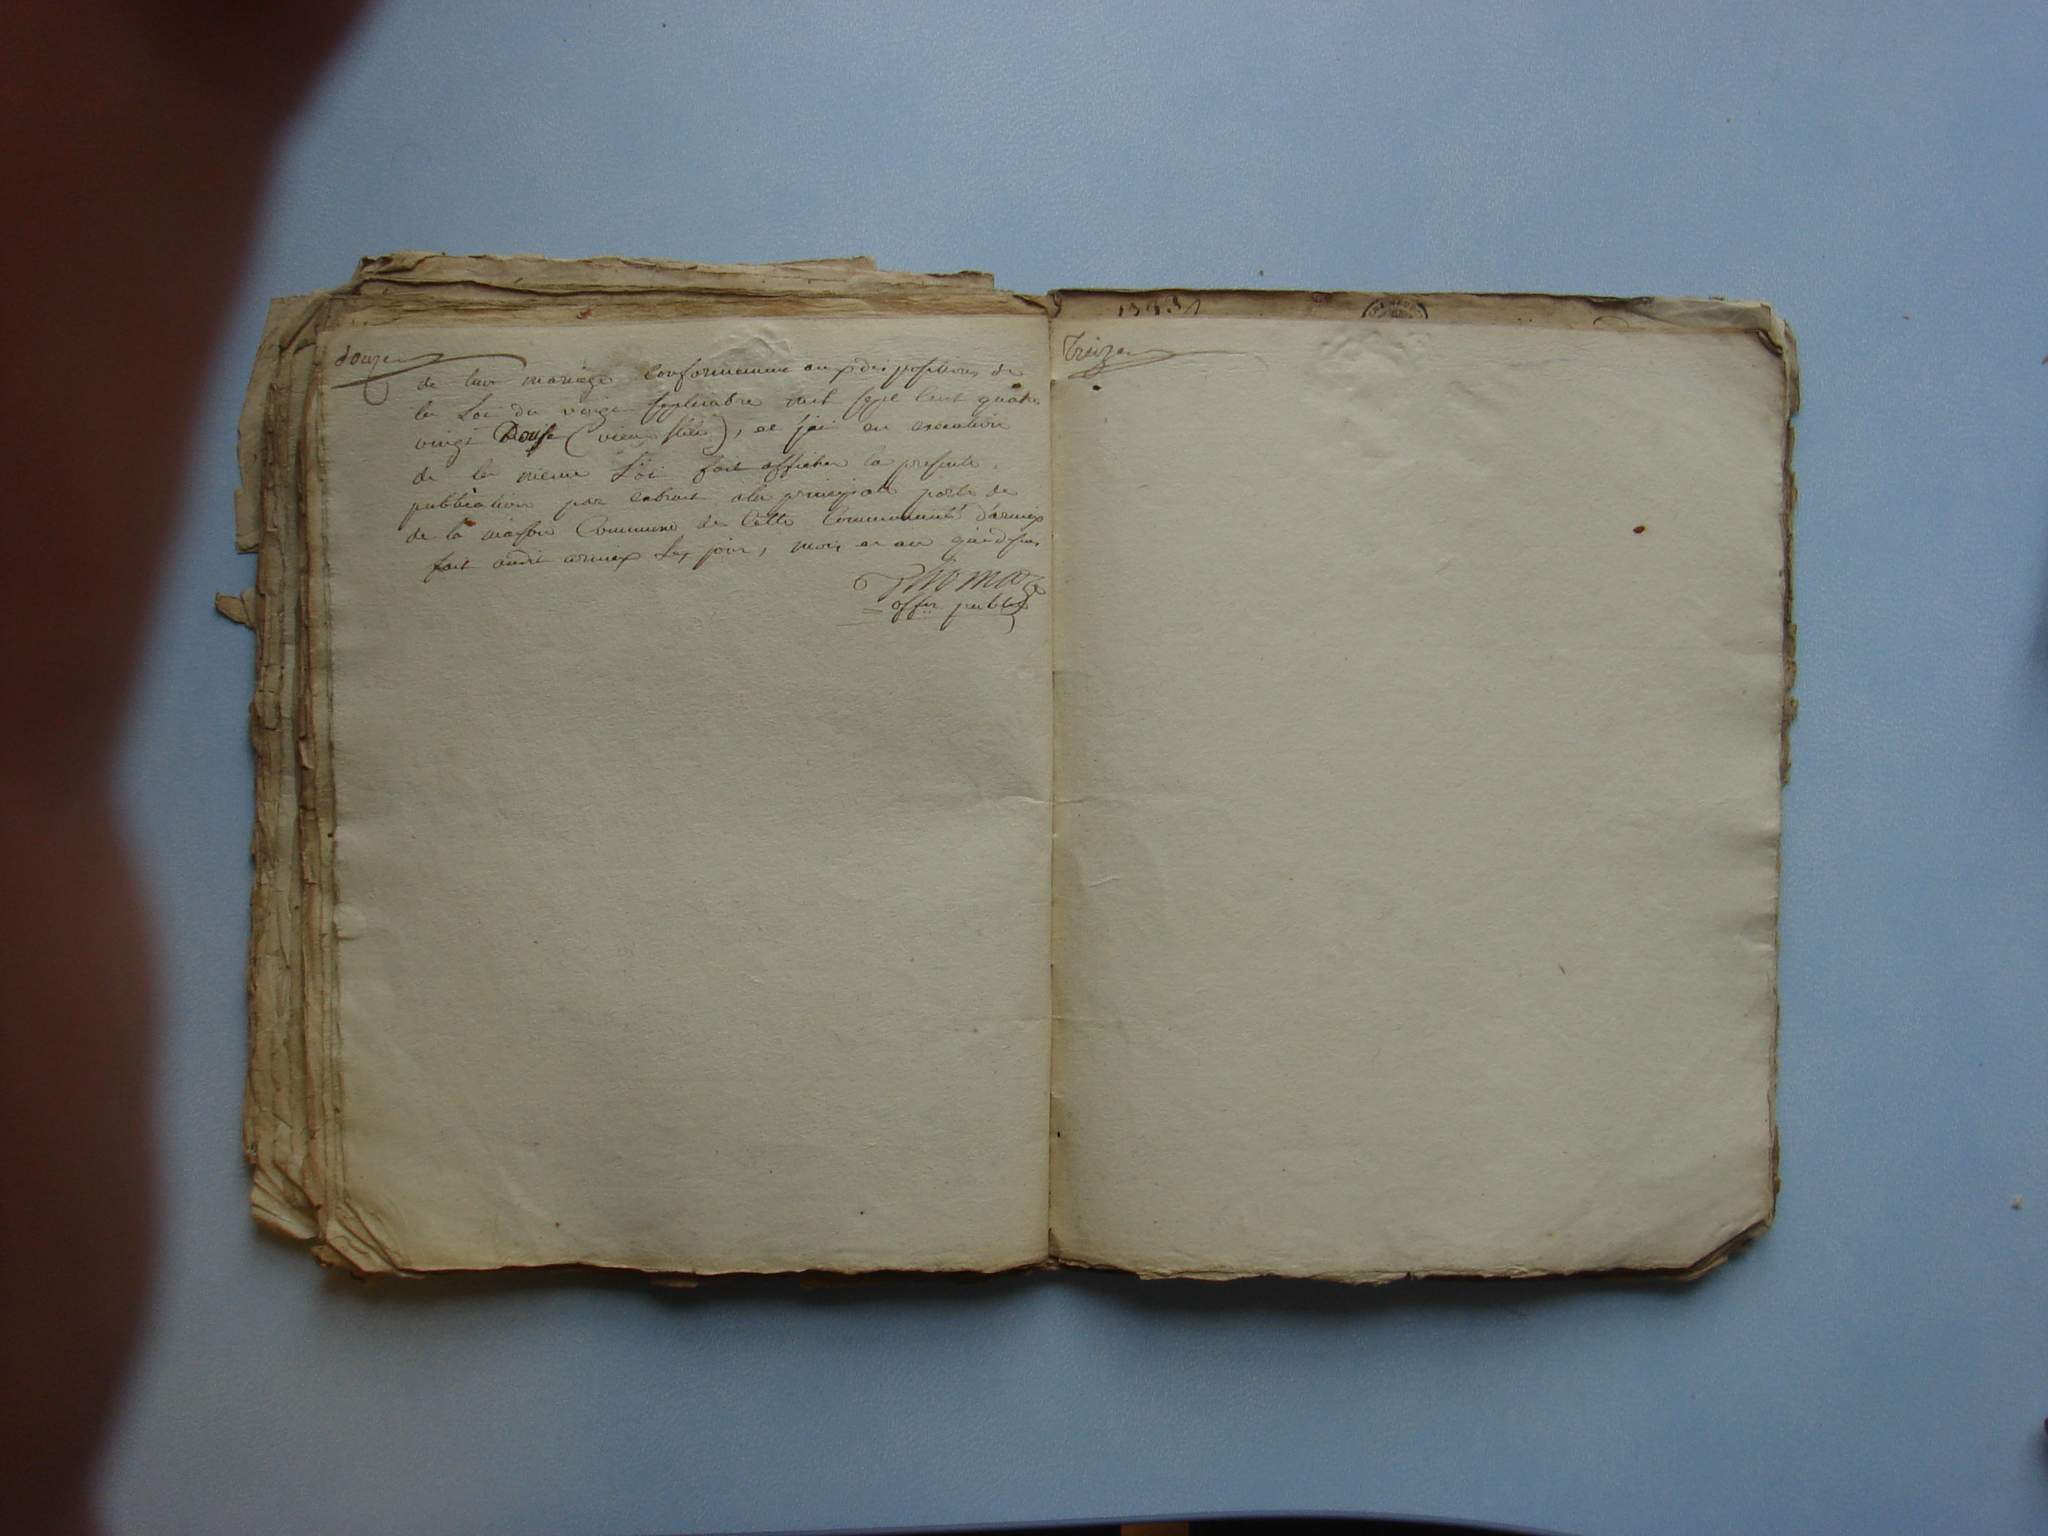 douze
de leur mariage conformement aux dispositions de
la Loi du vingt septembre mil sept cent quatre
vingt Douse (vieux stile), et j'ai en execution
de la meme Loi fait afficher la presente
publication par extrait a la principale porte de
de la maison Commune de Cette Communauté d'armix
fait audit armix les jour, mois et an que dessus
Thomas
offer public
Treize